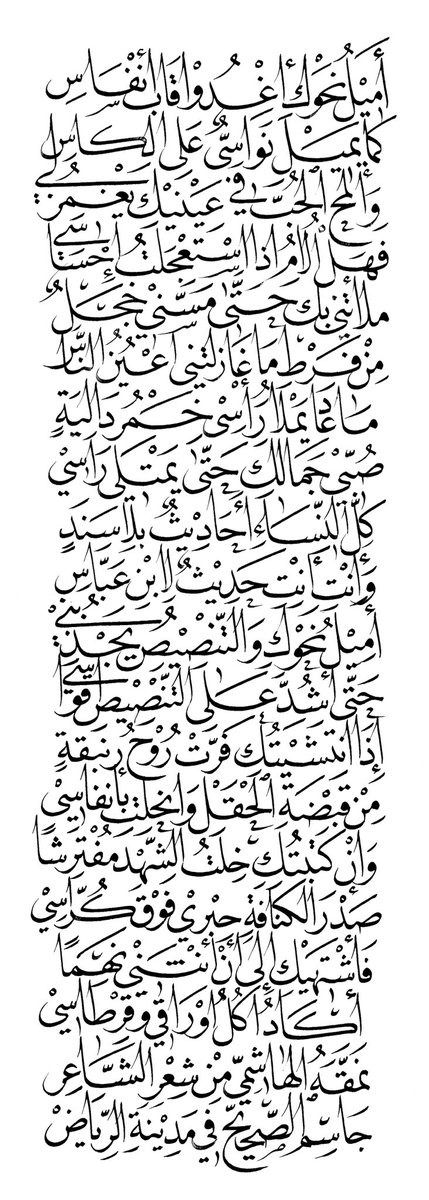 أَمِيلُ نَحْوَكِ أَغْدُو قَابَ أَنْفَاسِ
كَمَا يَمِيلُ نَوَاسِيٌّ عَلَى الْكَاسِ
وَأَلْمَحُ الْحُبَّ فِي عَيْنَيْكِ يَغْمِزُ لِي
فَهَلْ أُلَامُ إِذَا اسْتَعْجَلْتُ إِحْسَاسِي
مَلَأْتِنِي بِكِ حَتَّى مَسَّنِي خَجَلٌ
مِنْ فَرْطِ مَا غَازَلَتْنِي أَعْيُنُ النَّاسِ
مَا عَادَ يَمْلَأُ رَأْسِي خَمْرُ دَالِيَةٍ
صُبِّي جَمَالَكِ حَتَّى يَمْتَلِي رَاسِي
كُلُّ النِّسَاءِ أَحَادِيثٌ بِلَا سَنَدٍ
وَأَنْتِ أَنْتِ حَدِيثٌ لِابْنِ عَبَّاسِ
أَمِيلُ نَحْوَكِ وَالتَّنْصِيصُ يَجْذِبُنِي
حَتَّى أَشُدَّ عَلَى التَّنْصِيصِ أَقْوَاسِي
إِذَا انْتَشَيْتُكِ فَرَّتْ رُوحُ زَنْبَقَةٍ
مِنْ قَبْضَةِ الْحَقْلِ وَانْحَلَّتْ بِأَنْفَاسِي
وَإِنْ كَتَبْتُكِ خِلْتُ الشَّهْدَ مُفْتَرِشًا
صَدْرَ الْكُنَافَةِ حِبْرِي فَوْقَ كُرَّاسِي
فَأَشْتَهِيكِ إِلَى أَنْ أَنْثَنِي نَهِمًا
أَكَادُ آكُلُ أَوْرَاقِي وَقِرْطَاسِي
نَمَّقَهُ الْهَاشِمِيُّ مِنْ شِعْرِ الشَّاعِرِ
جَاسِمِ الصُّحَيِّحْ فِي مَدِينَةِ الرِّيَاضْ